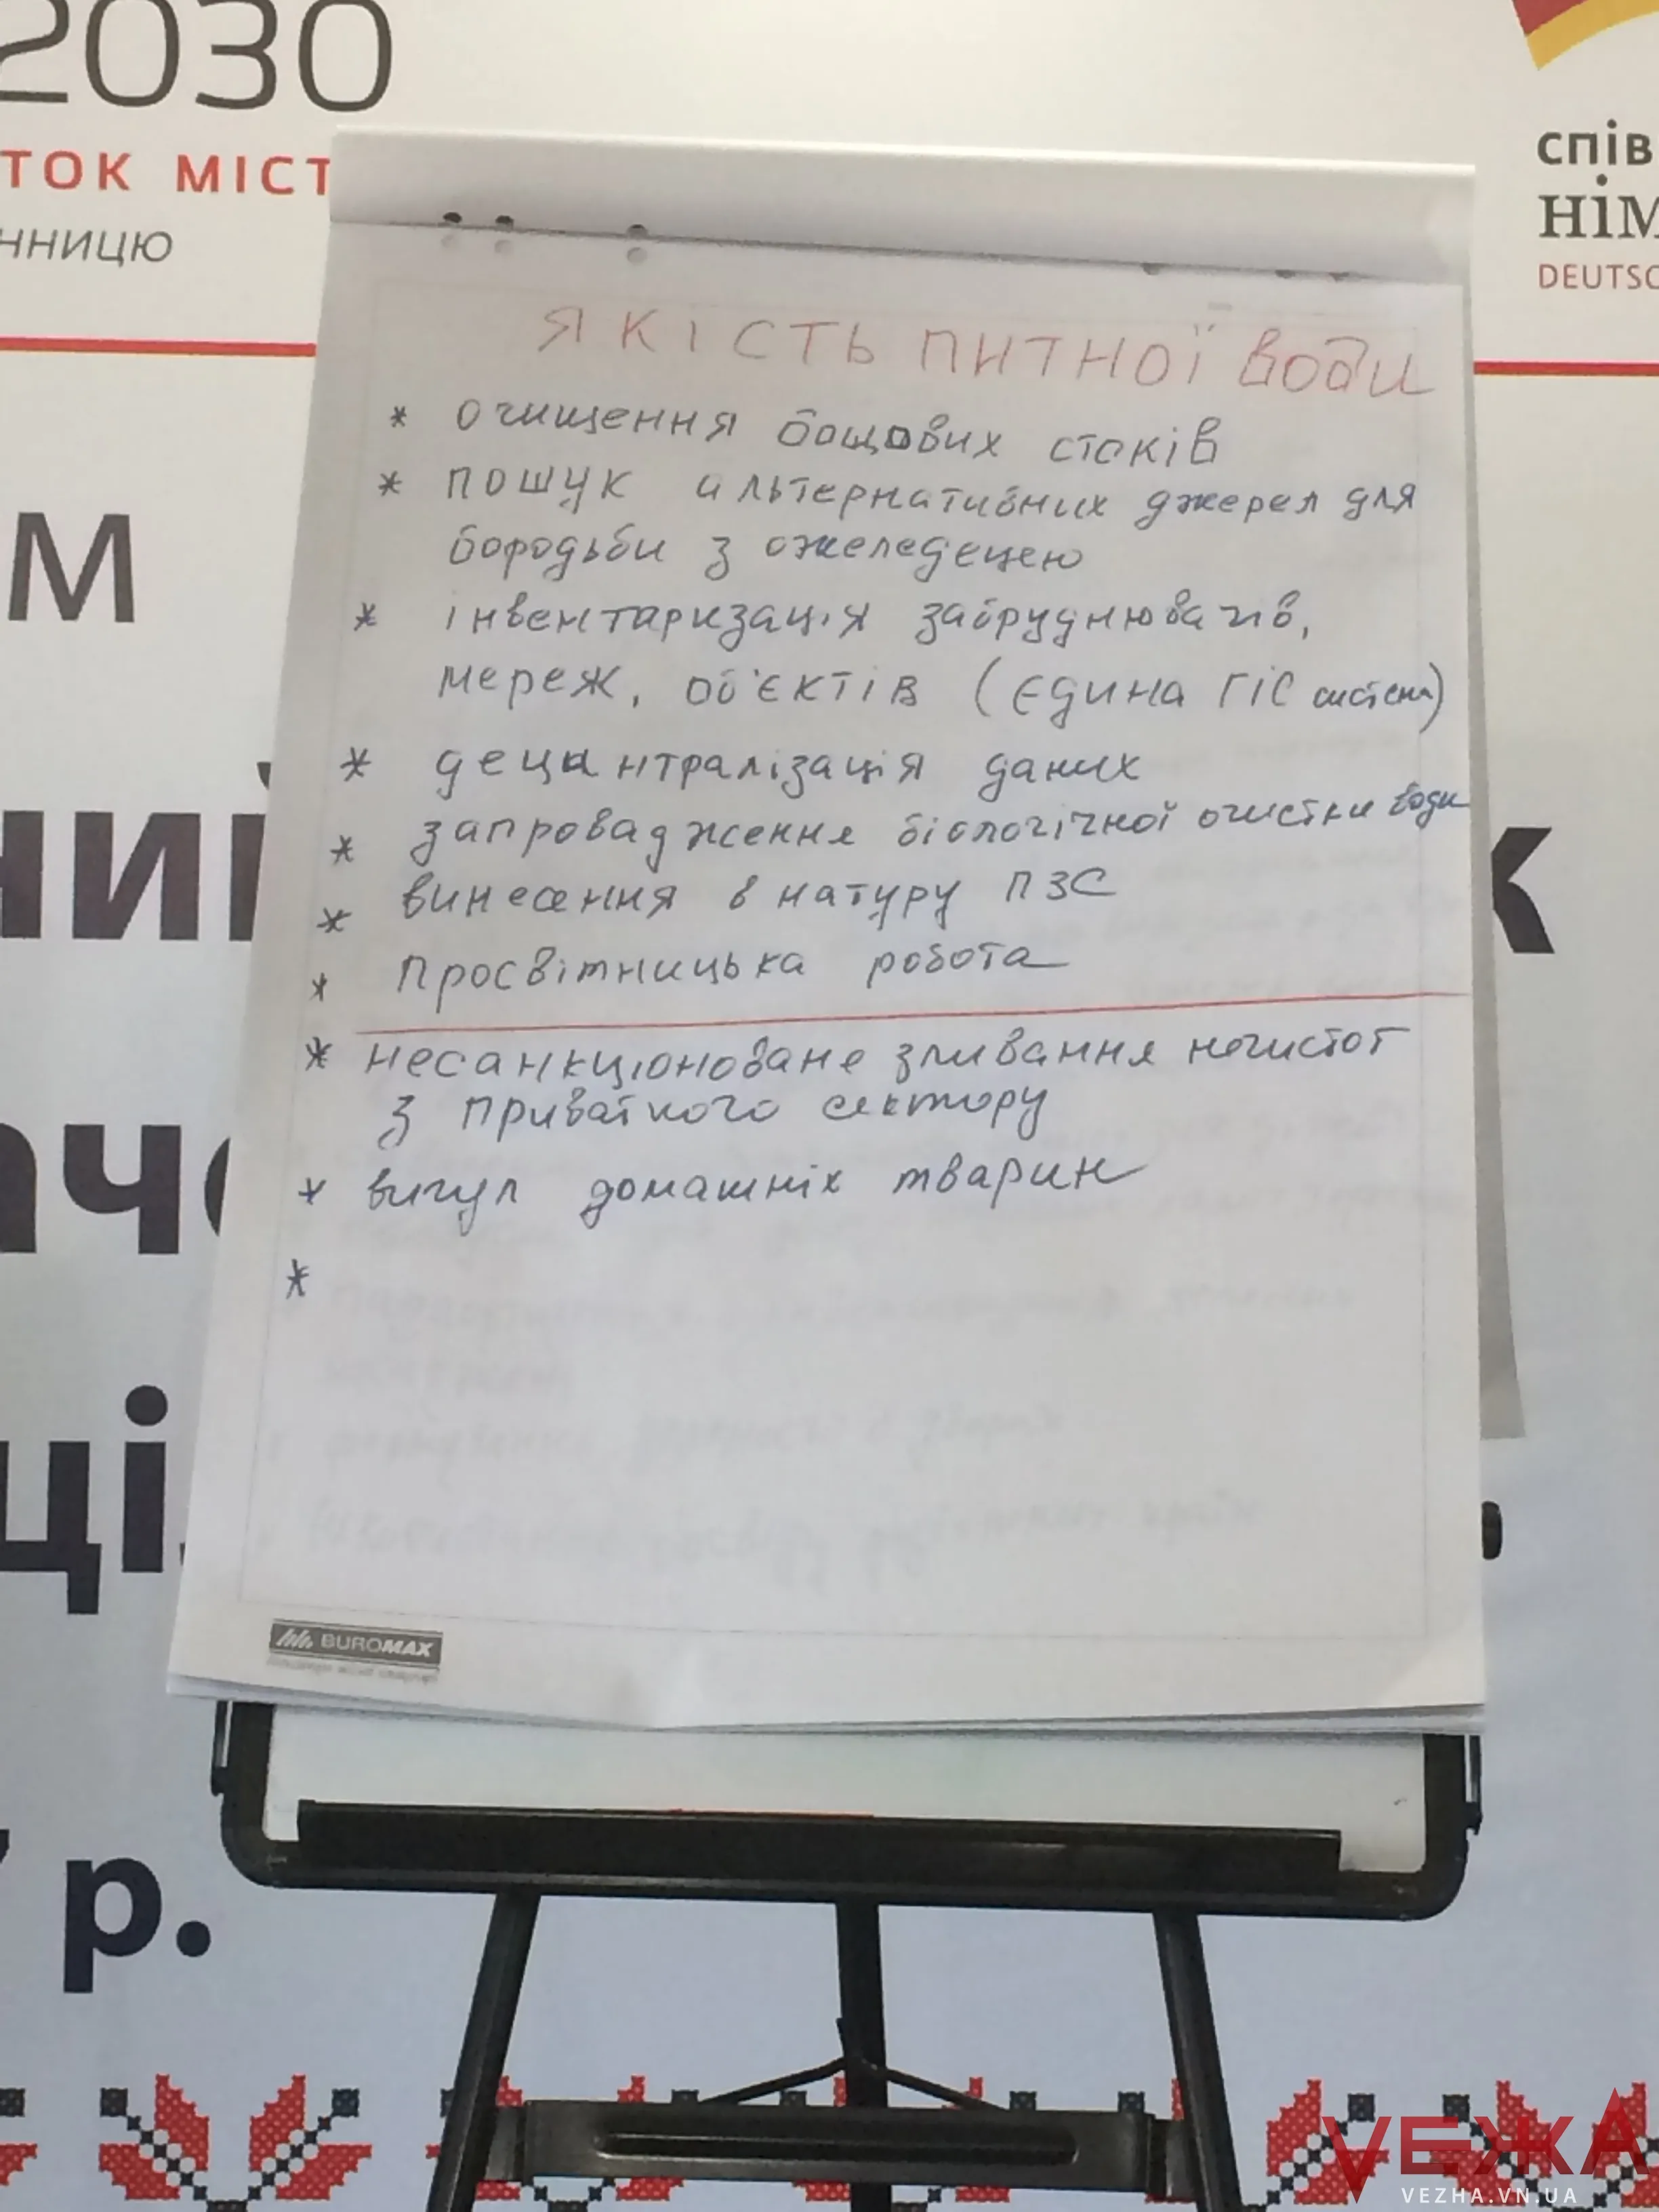 2030
ТОК МІСТ
ННИЦЮ
СПІВ
НІМ
DEUTSC
М
НИЙ
К
АЧЕ
ЦІ
р.
ЯКІСТЬ ПИТНОЇ ВОДИ
* очищення дощових стоків
* пошук альтернативних джерел для
бородьби з ожеледецею
* інвентаризація забруднювачів,
мереж, об'єктів (Єдина ГІС система)
* децинтралізація даних
* запровадження біологічної очистки води
* винесення в натуру ПЗС
* Просвітницька робота
* несанкціоноване зливання нечистот
з приватного сектору
* вигул домашніх тварин
*
BUROMAX
VЕЖА
VEZHA.VN.UA